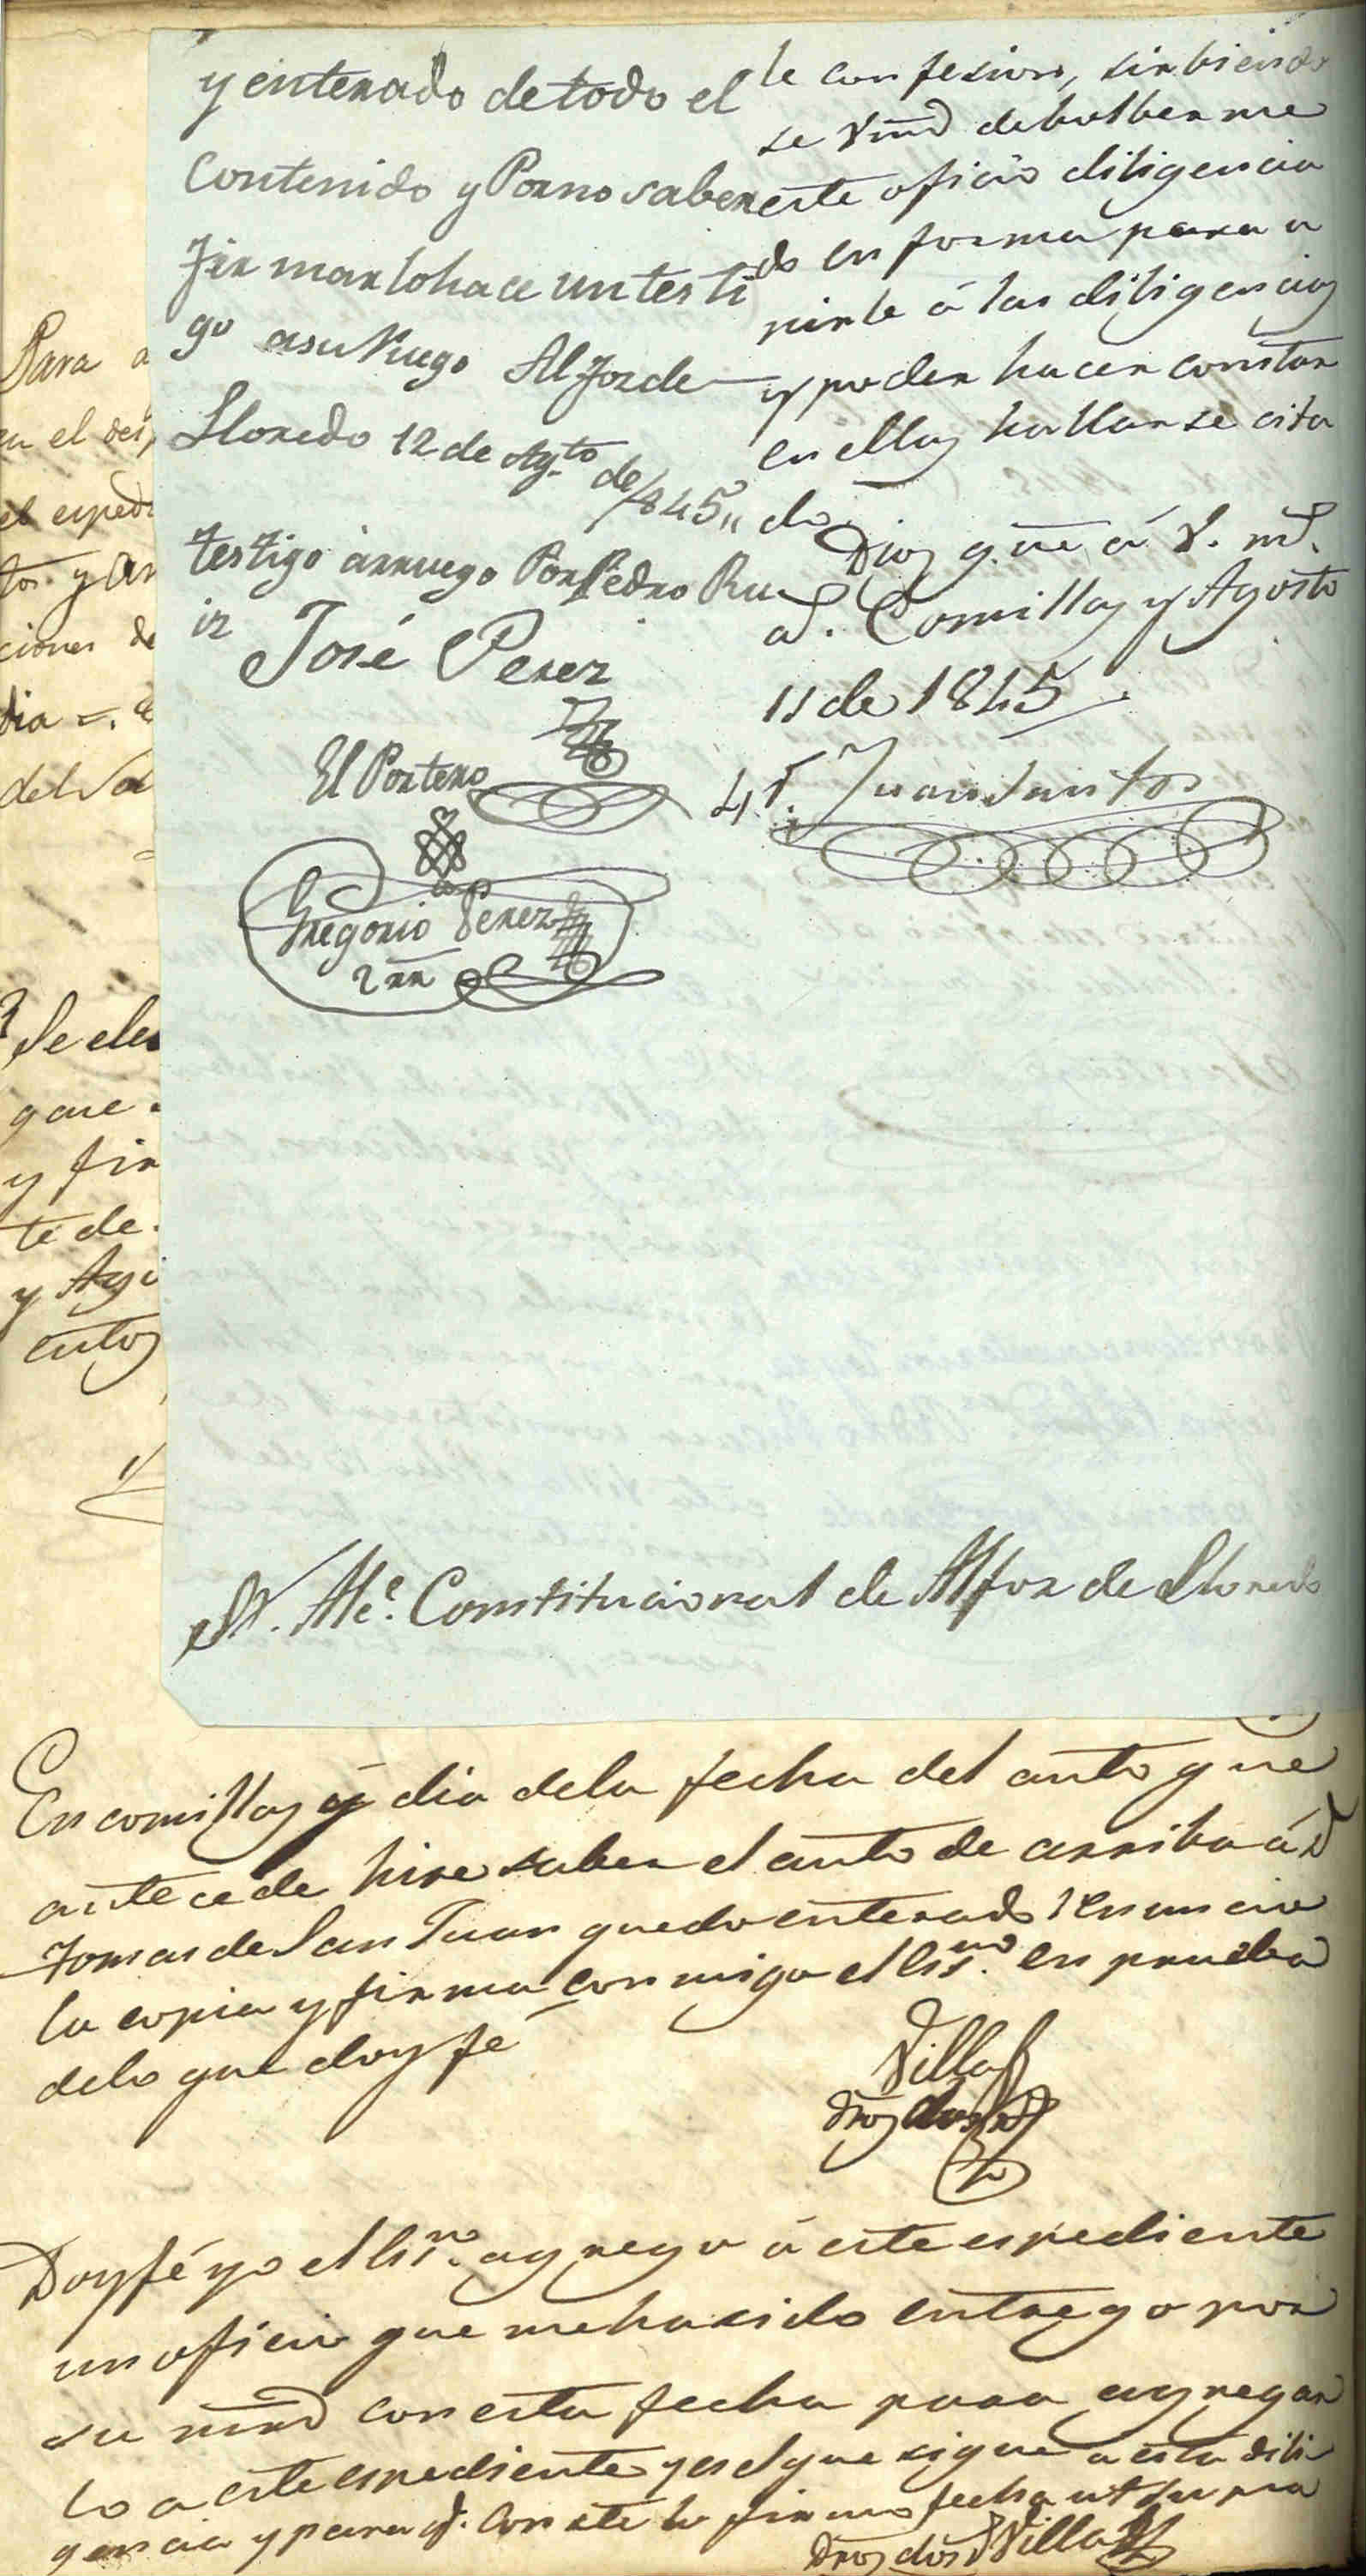 y enterado de todo el
Contenido y Por no saber
firmar lo hace un testi
go asu Ruego Alfoz de
Lloredo 12 de Agto de 1845,,
testigo arruego Por Pedro Ru
iz
José Perez
El Portero
Gregorio Perez
2 rr
le confesion, sirbiendo
se Vmd debolberme
este oficio diligencia
do en forma para u
nirle á las diligencias
y poder hacer constar
en ellas hallarse cita
do.
Dios gue á V. md.
as. Comillas y Agosto
11 de 1845
Juan Santos
Sr. Ale. Constitucional de Alfoz de Lloredo
Para a
en el des
el esped
to. y an
ciones de
dia =. e
del Va
Se ele
que
y fir
te de
y Ago
entos
En comillas y dia dela fecha del auto que
antecede hise saber el auto de arriba á D
Tomas de San Juan quedo enterado renuncio
la copia y firma con migo el Esno. en prueba
delo que doy fé
Villa
Dros dos
Doy fé yo el Esno. agrego á este espediente
un oficio que me ha sido entrego por
su md con esta fecha para agregar
lo a este espediente y es el que sigue a esta dili
gencia y para q. Conste lo firmo fecha ut supra
Dros dos Villa